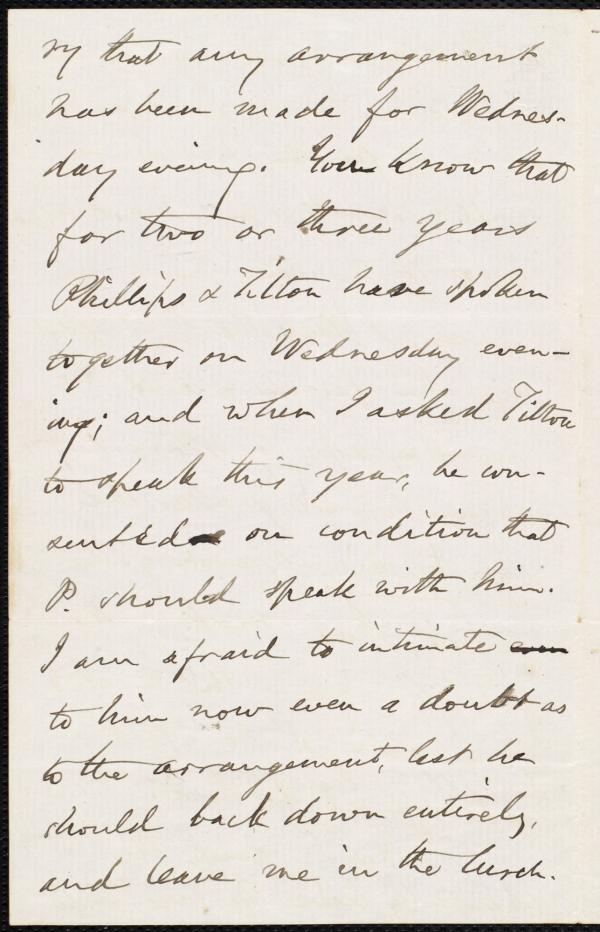 ry that any arrangement
has been made for Wednes-
day evening. You know that
for two or three years
Phillips & Tilton have spoken
together on Wednesday even-
ing; and when I asked Tilton
to speak this year, he con-
sented on condition that
P. should speak with him.
I am afraid to intimate even
to him now even a doubt as
to the arrangement, lest he
should back down entirely,
and leave me in the lurch.